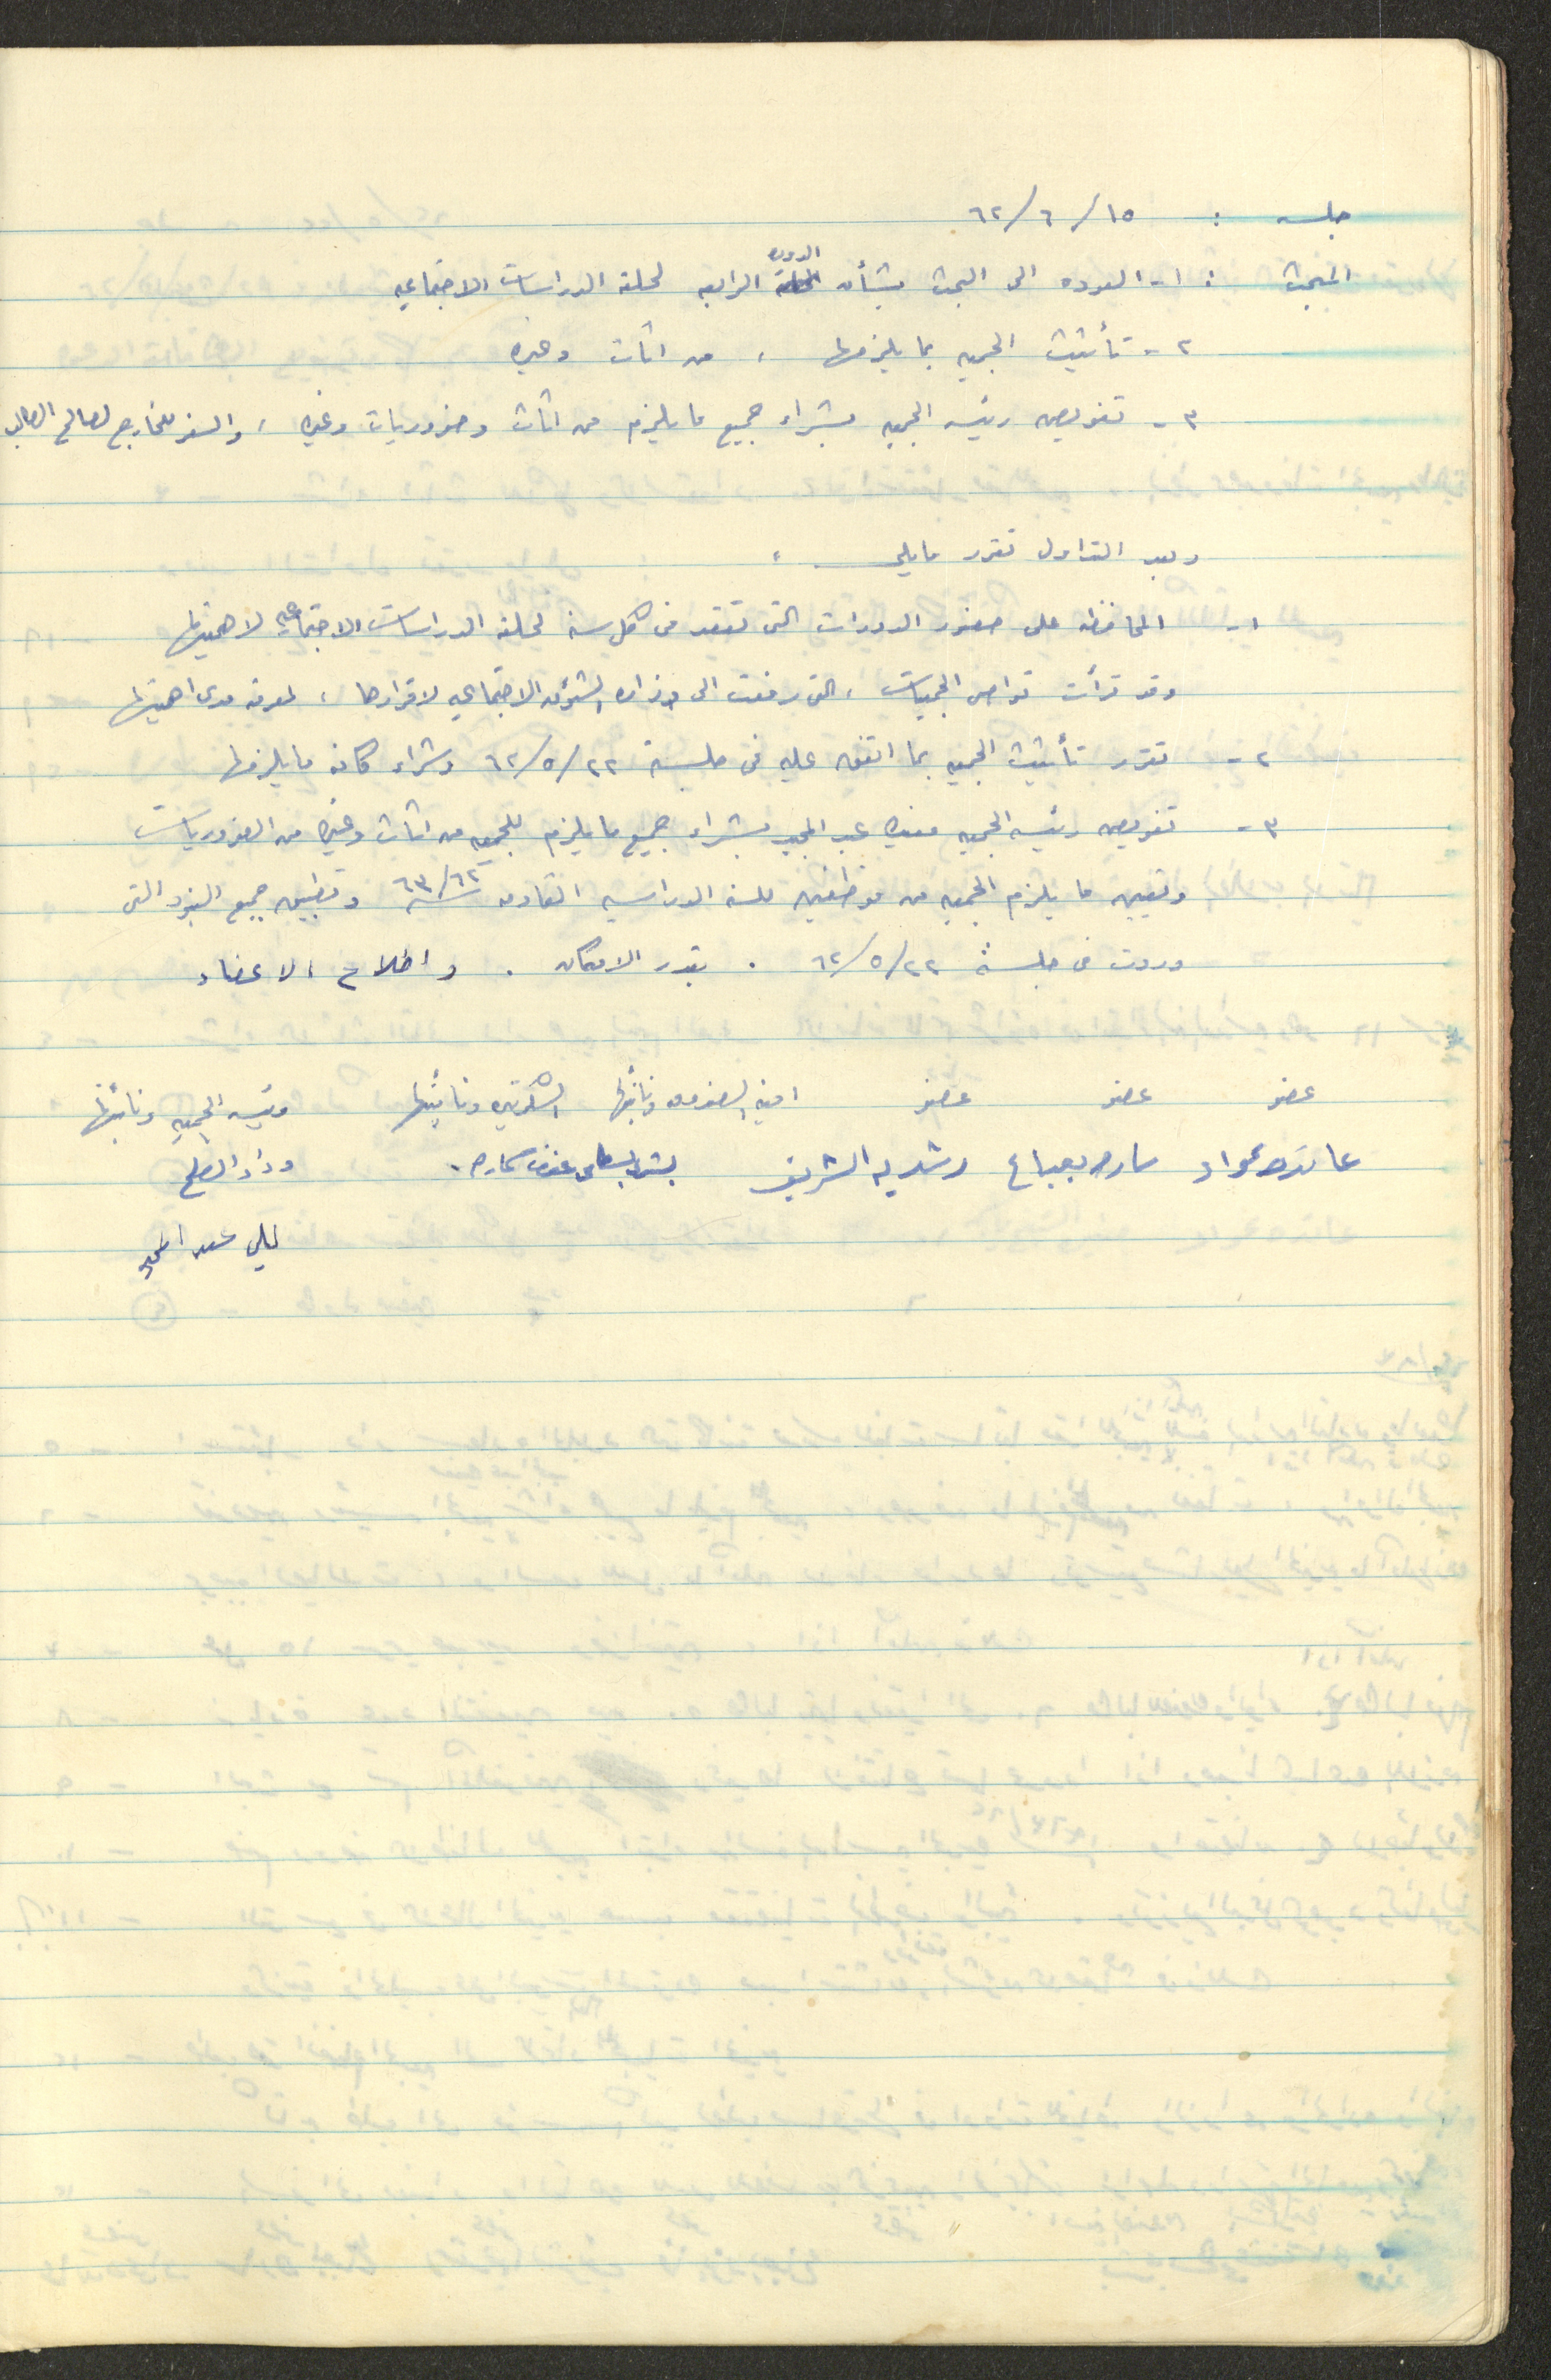 جلسه : ١٥/٦/٦٢
المبحث : ١- العوده الى البحث بشأن الدوره الرابعه لحلقة الدراسات الاجتماعيه
٢- تأثيث الجمعيه بما يلزمها ، من اثاث وغيره
٣- تفويض رئيسه الجمعيه بشراء جميع ما يلزم من اثاث وضروريات وغيره ، والسفر للخارج لصالح الطالب
وبعد التداول تقرر مايلي :
١- المحافظه على حضور الدورات التى تعقد فى كل سنه لحلقة الدراسات الاجتماعيه لاهميتها
وقد قرأت نواص الجمعيات ، التى رفعت الى وزاره الشؤون الاجتماعيه لاقرارها ، لمعرفه مدى اهميتها
٢- تقرر تأثيث الجمعيه بما اتفق عليه فى جلسة ٢٢/٥/٦٢ وشراء كافه ما يلزمها
٣- تفويض رئيسه الجمعيه مفيده عبد المجيد بشراء جميع ما يلزم للجمعيه من اثاث وغيره من الضروريات
وتعيين ما يلزم الجمعيه من موظفين للسنه الدراسيه القادمه سنة ٦٢/٦٣ وتطبيق جميع البنود التى
وردت فى جلسة ٢٢/٥/٦٢ . بقدر الامكان . واطلاع الاعضاء
عضو عضو عضو امينه الصندوق ونائبتها السكرتيره ونائبتها رئيسه الجمعيه ونائبتها
عائده عواد ساره بعباع رشديه الشريف بشرى بسطامى عفاف سماره . وداد الصلح
ليلى عبد المجيد